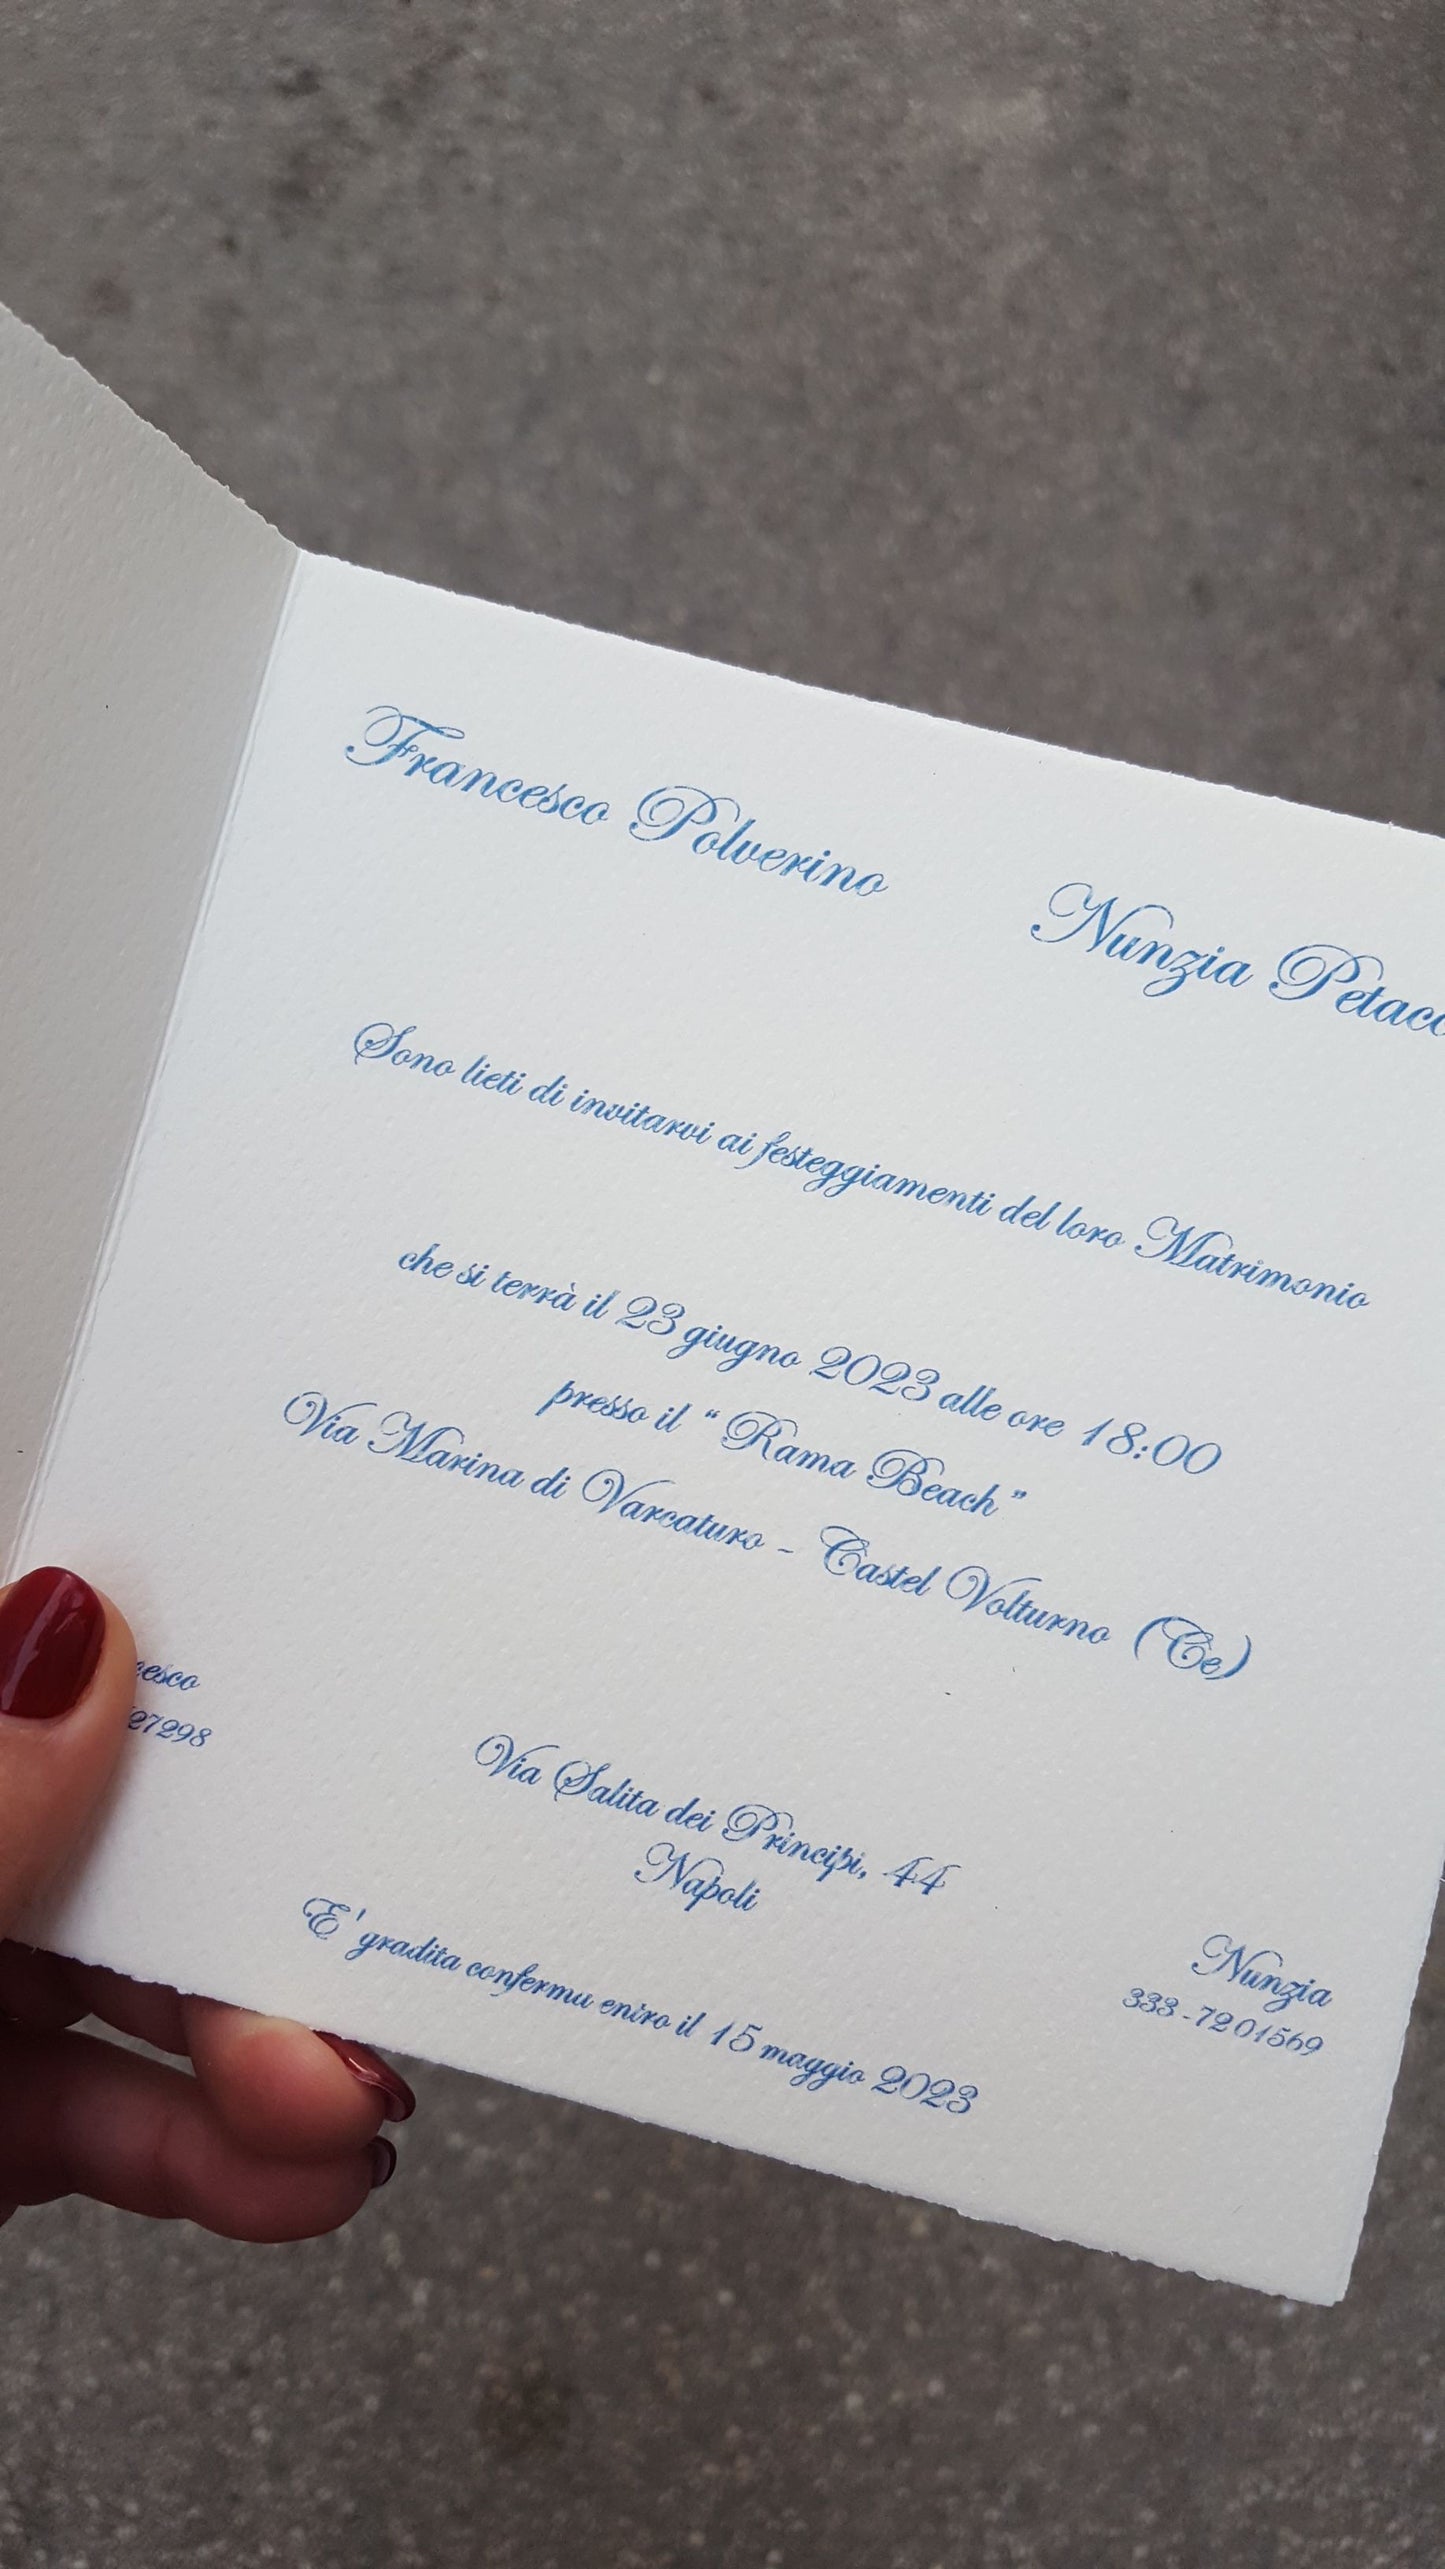 Francesco Polverino Nunzia Petacc
Sono lieti di invitarvi ai festeggiamenti del loro Matrimonio
che si terrà il 23 giugno 2023 alle ore 18:00
presso il “Rama Beach”
Via Marina di Varcaturo - Castel Volturno (Ce)
cesco
27298
Via Salita dei Principi, 44
Napoli
Nunzia
333-7201569
E' gradita conferma entro il 15 maggio 2023